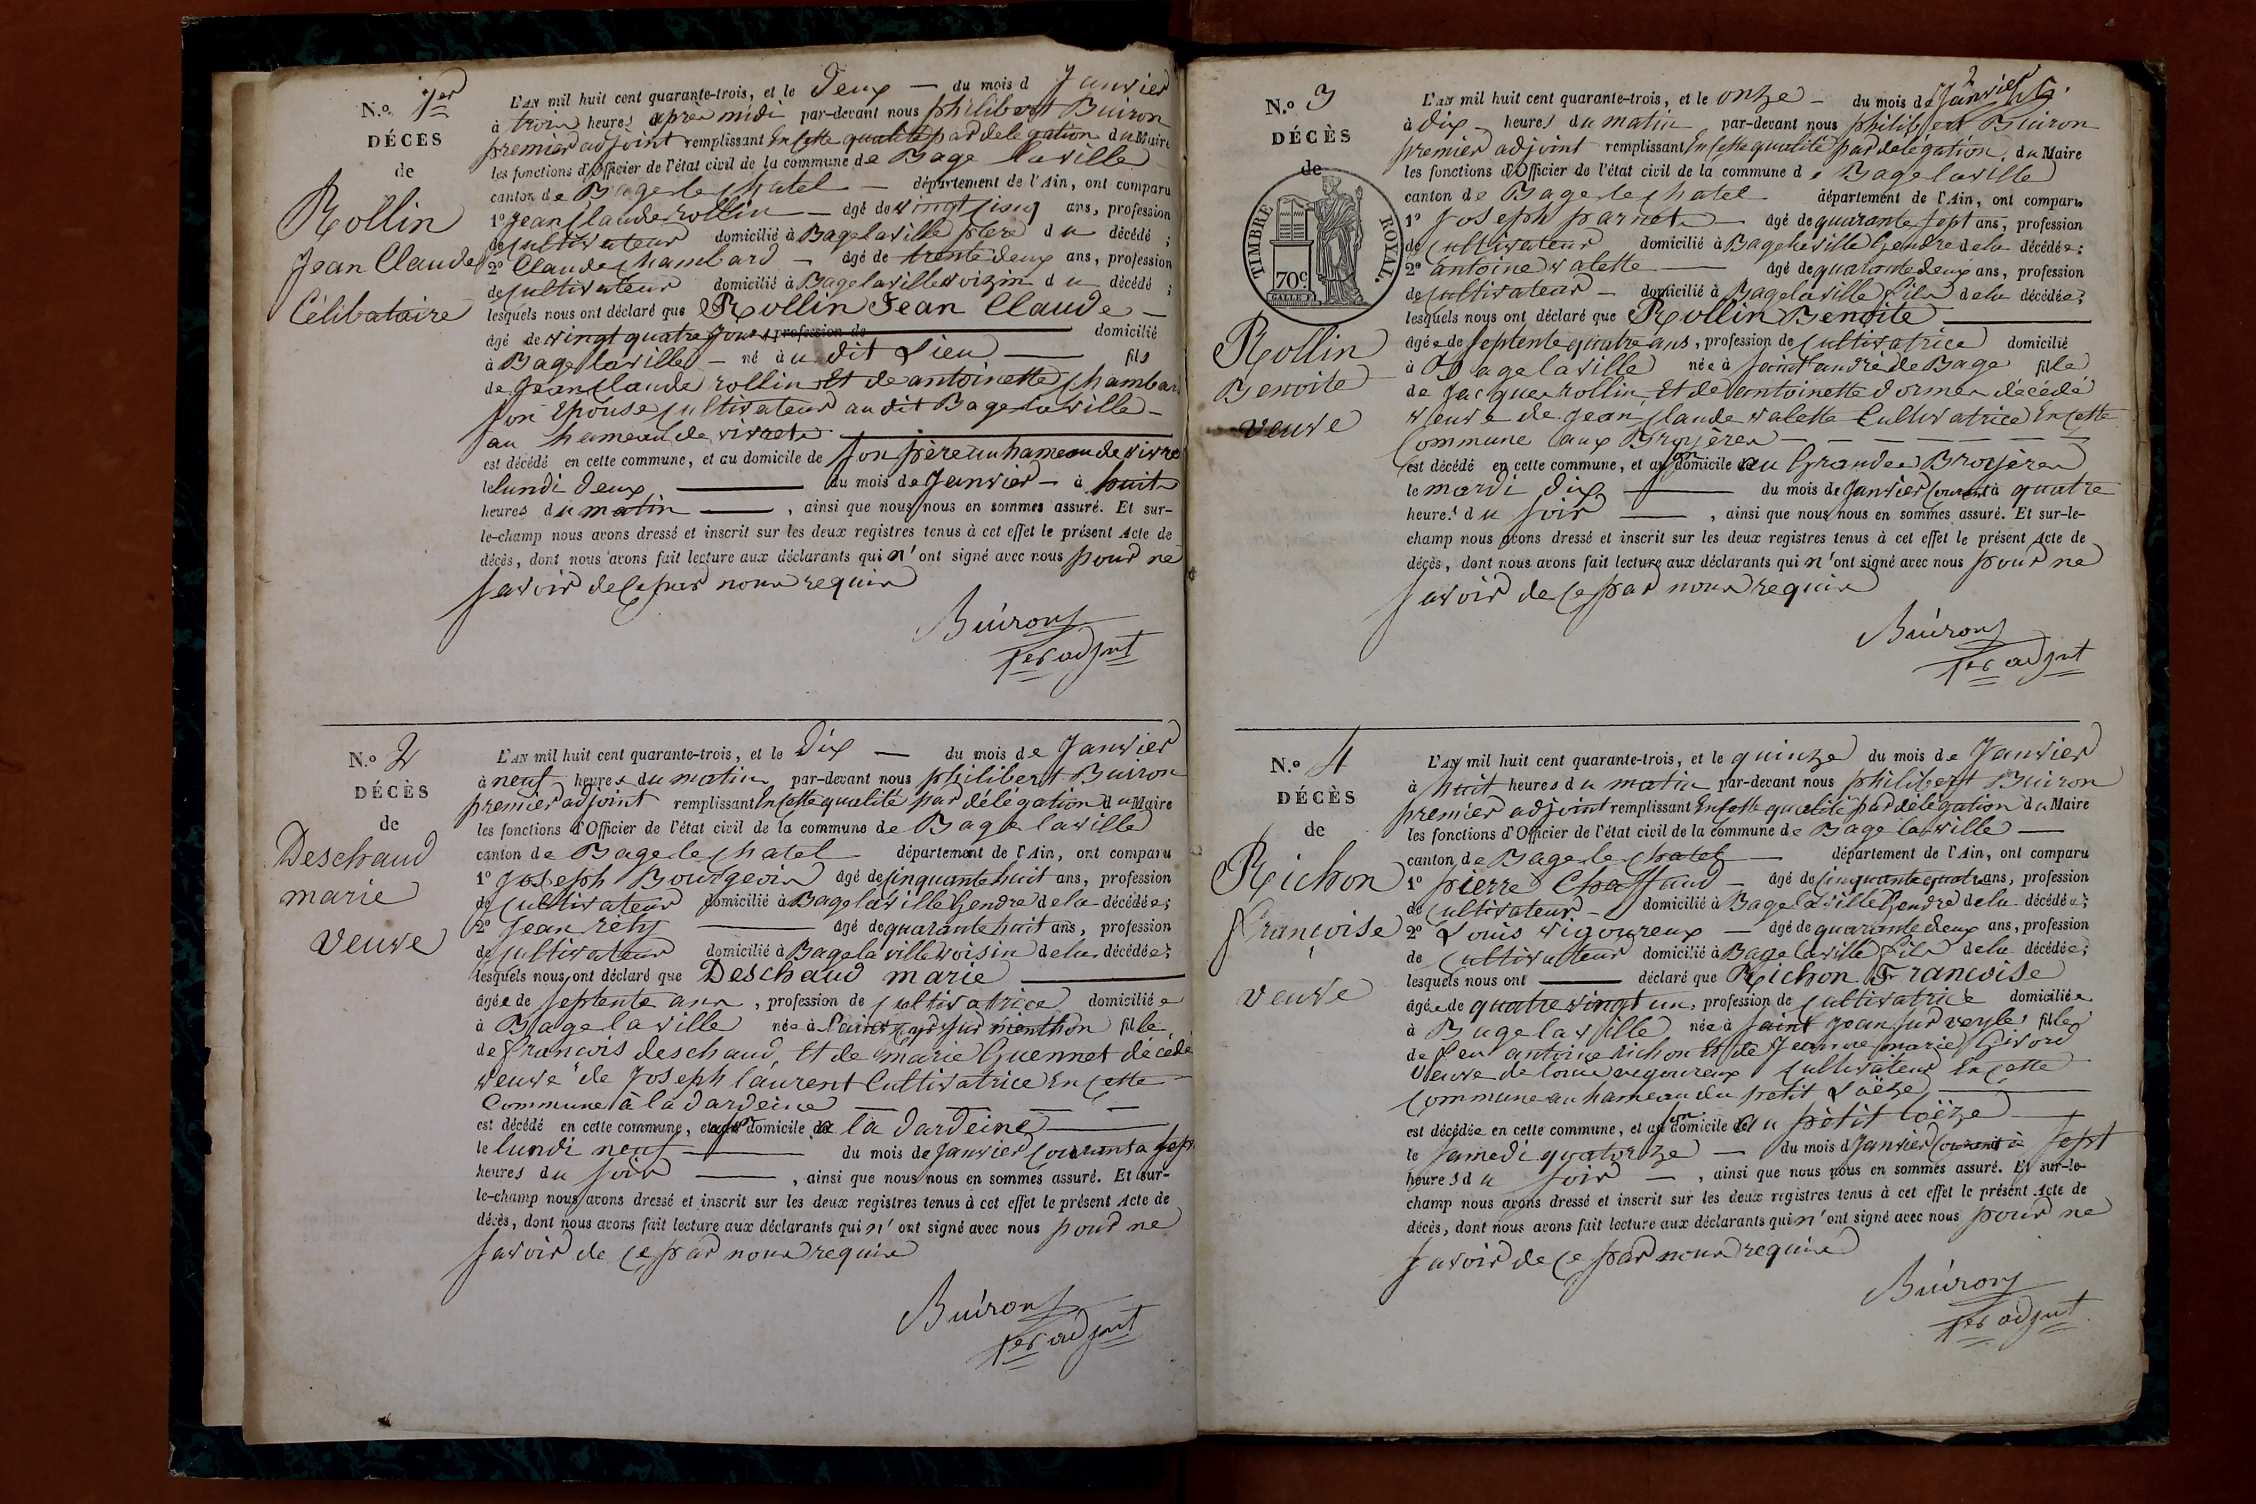 N.o 1er
DÉCÈS
de
Rollin
Jean Claude
Célibataire
L'AN mil huit cent quarante-trois, et le Deux — du mois d Janvier
à trois heures après midi par-devant nous philibert Buiron
premier adjoint remplissant En cette qualité par delegation du Maire
les fonctions d'Officier de l'état civil de la commune de Bage laville
canton de Bage le chatel — département de l'Ain, ont comparu
1o Jean Claude rollin — âgé de vingt cinq ans, profession
de cultivateur domicilié à Bage laville père du décédé ;
2o Claude chambard — âgé de trente deux ans, profession
de cultivateur domicilié à Bage laville voizin du décédé ;
lesquels nous ont déclaré que Rollin Jean Claude —
âgé de vingt quatre jours profession de domicilié
à Bage laville — né à u dit Lieu — fils
de Jean Claude rollin Et de antoinette chambard
son Epouse cultivateur au dit Bage laville —
au hameau de vivret
est décédé en cette commune, et au domicile de son père au hameau de vivre
le lundi deux — du mois de Janvier — à huit
heures du matin — , ainsi que nous nous en sommes assuré. Et sur-
le-champ nous avons dressé et inscrit sur les deux registres tenus à cet effet le présent Acte de
décès, dont nous avons fait lecture aux déclarants qui n'ont signé avec nous pour ne
savoir de ce par nous requis
Buiron
1er adjnt
N.o 2
DÉCÈS
de
Deschaud
marie
veuve
L'AN mil huit cent quarante-trois, et le Dix — du mois de Janvier
à neuf heures du matin par-devant nous philibert Buiron
premier adjoint remplissant En cette qualité par délégation du Maire
les fonctions d'Officier de l'état civil de la commune de Bage laville
canton de Bage le chatel département de l'Ain, ont comparu
1o Joseph Bourgeois âgé de cinquante huit ans, profession
de cultivateur domicilié à Bage laville Gendre de la décédée ;
2o Jean rety — âgé de quarante huit ans, profession
de cultivateur domicilié à Bage la ville voisin de la décédée ;
lesquels nous ont déclaré que Deschaud marie —
âgée de septente ans , profession de cultivatrice domiciliée
à Bage la ville née à Saint cyr sur menthon fille
de francois deschaud, Et de marie Guennet décédé
veuve de Joseph laurent Cultivatrice En cette
Commune à la dardeine — — — —
est décédé en cette commune, et a son domicile a la dardeine —
le lundi neuf — du mois de Janvier courant à sept
heures du soir — , ainsi que nous nous en sommes assuré. Et sur-
le-champ nous avons dressé et inscrit sur les deux registres tenus à cet effet le présent Acte de
décès, dont nous avons fait lecture aux déclarants qui n'ont signé avec nous pour ne
savoir de ce par nous requis
Buiron
1er adjnt
2
N.o 3
DÉCÈS
de
TIMBRE ROYAL
70c.
Rollin
Benoite
veuve
L'AN mil huit cent quarante-trois, et le onze — du mois de Janvier
à dix heures du matin par-devant nous philibert Buiron
premier adjoint remplissant En cette qualité par delégation, du Maire
les fonctions d'Officier de l'état civil de la commune de Bage laville
canton de Bage le chatel département de l'Ain, ont comparu
1o Joseph parnet — âgé de quarante sept ans, profession
de Cultivateur domicilié à Bage laville Gendre de la décédée ;
2o antoine valette — âgé de quarante deux ans, profession
de cultivateur — domicilié à Bage laville fils de la décédée ;
lesquels nous ont déclaré que Rollin Benoite —
âgée de septente quatre ans , profession de cultivatrice domicilié
à Bage laville née à saint andré de Bage fille
de Jacques rollin, Et de antoinette dormer décédé
veuve de Jean claude valette Cultivatrice En cette
Commune aux Bruyères — — — — — —
est décédé en cette commune, et a son domicile au Grandes Bruyères
le mardi dix — du mois de Janvier courant à quatre
heures du soir — , ainsi que nous nous en sommes assuré. Et sur-le-
champ nous avons dressé et inscrit sur les deux registres tenus à cet effet le présent Acte de
décès, dont nous avons fait lecture aux déclarants qui n'ont signé avec nous pour ne
savoir de ce par nous requis
Buiron
1er adjnt
N.o 4
DÉCÈS
de
Richon
françoise
veuve
L'AN mil huit cent quarante-trois, et le quinze du mois de Janvier
à huit heures du matin par-devant nous philibert Buiron
premier adjoint remplissant En cette qualité par délégation du Maire
les fonctions d'Officier de l'état civil de la commune de Bage laville —
canton de Bage le chatel — département de l'Ain, ont comparu
1o pierre Chaffaud — âgé de cinquante quatre ans, profession
de cultivateur — domicilié à Bage laville Gendre de la décédée ;
2o Louis vigoureux — âgé de quarante deux ans, profession
de cultivateur domicilié à Bage laville fils de la décédée ;
lesquels nous ont — déclaré que Richon Francoise
âgée de quatre vingt un, profession de cultivatrice domiciliée
à Bage laville née à saint Jean sur veyle fille
de feu antoine Richon Et de Jeanne marie Givord
Veuve de louis vigoureux cultivateur En cette
commune au hameau du petit Loëze —
est décédée en cette commune, et a son domicile au petit loëze —
le samedi quatorze — du mois d Janvier courant à sept
heures du soir — , ainsi que nous nous en sommes assuré. Et sur-le-
champ nous avons dressé et inscrit sur les deux registres tenus à cet effet le présent Acte de
décès, dont nous avons fait lecture aux déclarants qui n'ont signé avec nous pour ne
savoir de ce par nous requis
Buiron
1er adjnt